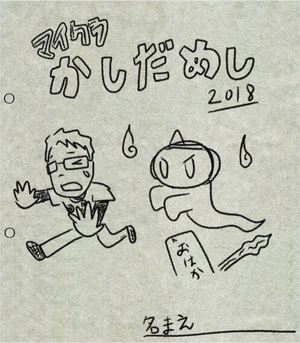 マイクラ
かしだめし
2018
おはか
名まえ